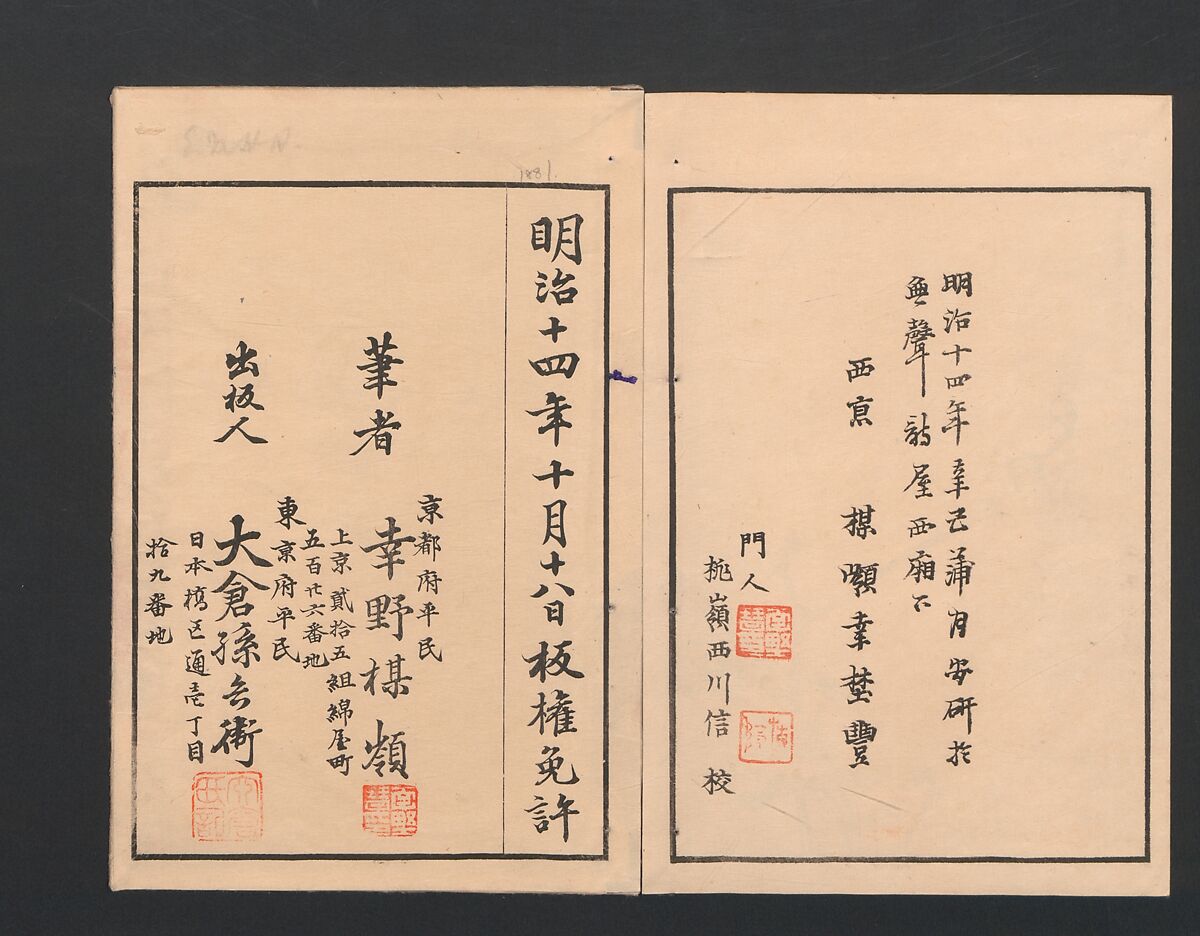 明治十四年辛巳蒲月安研於
無聲詩屋西廂下
西京 楳嶺幸埜豐
門人
桃嶺西川信校
1881.
明治十四年十月十八日板權免許
京都府平民
上京貳拾五組綿屋町
五百廿六番地
筆者 幸野楳嶺
東京府平民
日本橋区通壱丁目
拾九番地
出板人 大倉孫兵衛